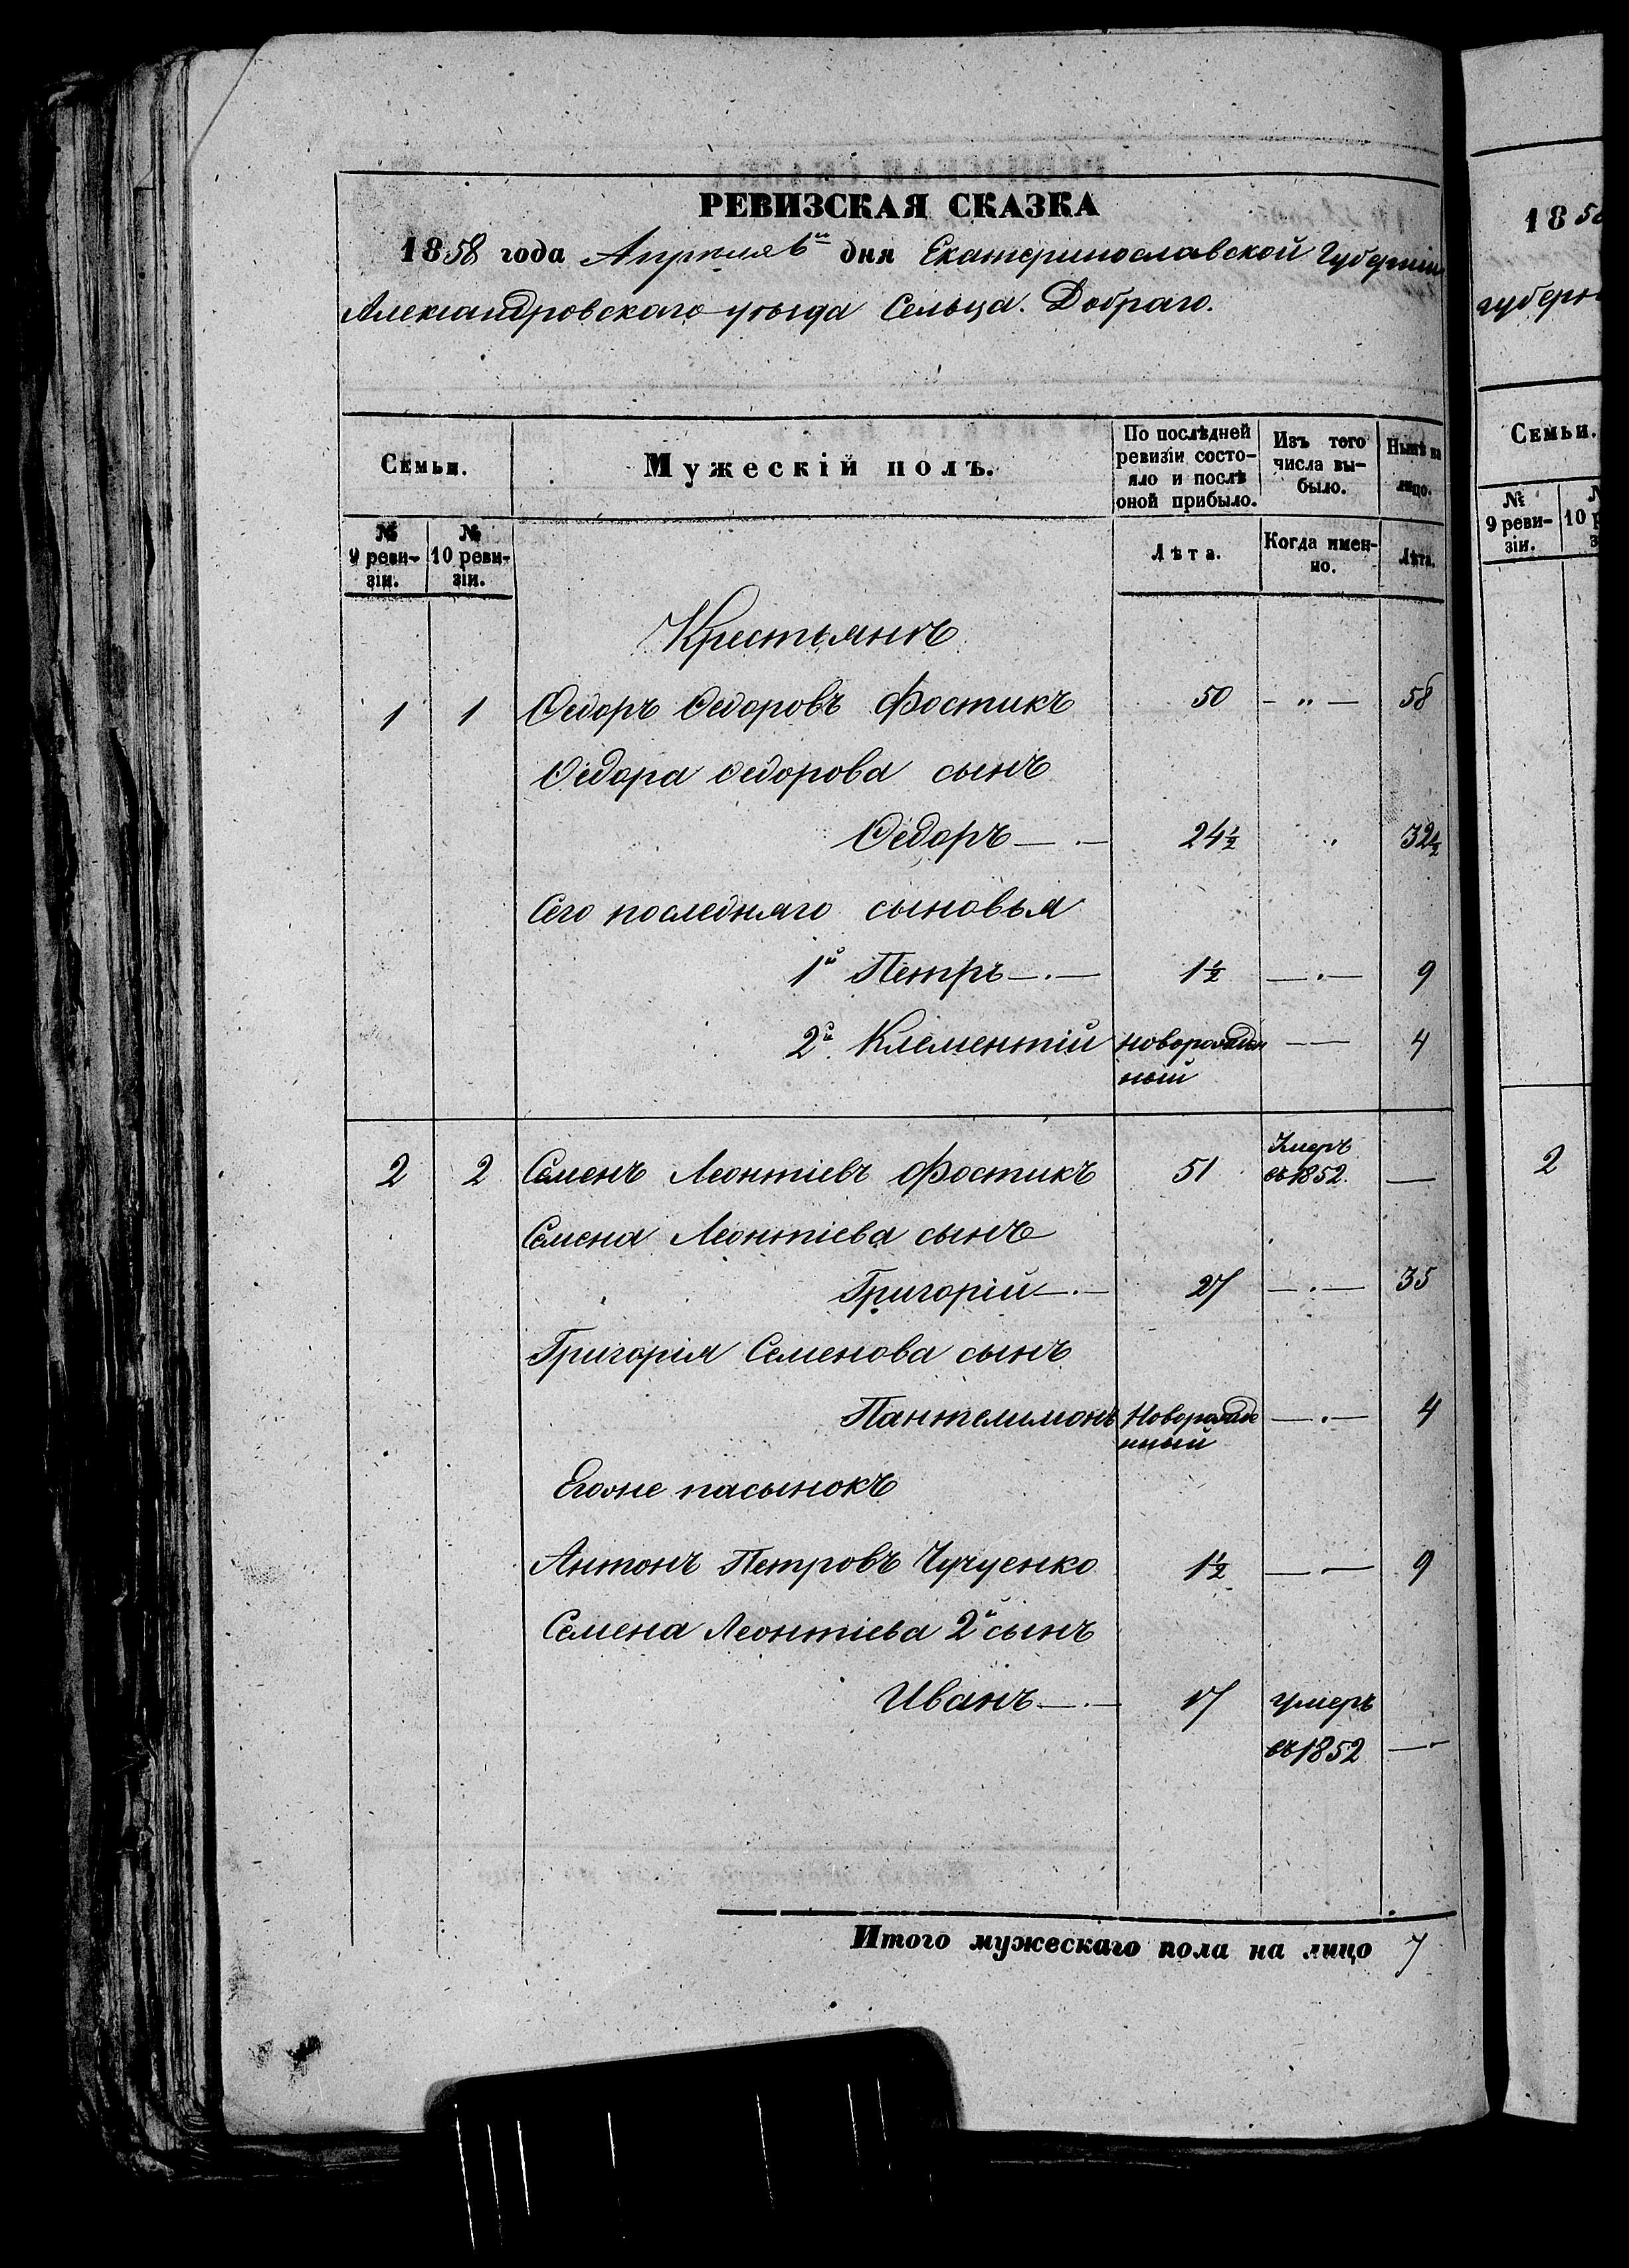 РЕВИЗСКАЯ СКАЗКА
1858 года Апреля 6го дня Екатеринославской Губерніи
Александровскаго уѣзда Сельца. Добраго.
Семьи.
Мужескій полъ.
По послѣдней ревизіи состо-
яло и послѣ оной прибыло.
Изъ того числа вы-
было.
Нынѣ на лицо.
№ 9 реви-
зіи.
№ 10 реви-
зіи.
Лѣта.
Когда имен-
но.
Лѣта.
Крестьянъ
1 1 Ѳедоръ Ѳедоровъ Фостикъ 50 - „ - 58
Ѳедора Ѳедорова сынъ
Ѳедоръ — . — 24½ „ 32½
Сего последняго сыновья
1й Петръ — . — 1½ — . — 9
2й Клементій новорожден 4
ный
2 2 Семенъ Леонтіевъ Фостикъ 51 Умеръ
въ 1852. —
Семена Леонтіева сынъ
Григорій — . — 27 — . — 35
Григорія Семенова сынъ
Пантелимонъ Новорожде — . — 4
нный
Егоже пасынокъ
Антонъ Петровъ Чучуенко 1½ — . — 9
Семена Леонтіева 2й сынъ
Иванъ — . — 17 умеръ
въ 1852 — .
Итого мужескаго пола на лицо 7
185
губерн
Семьи.
№ 9 реви-
зіи.
10 р
2